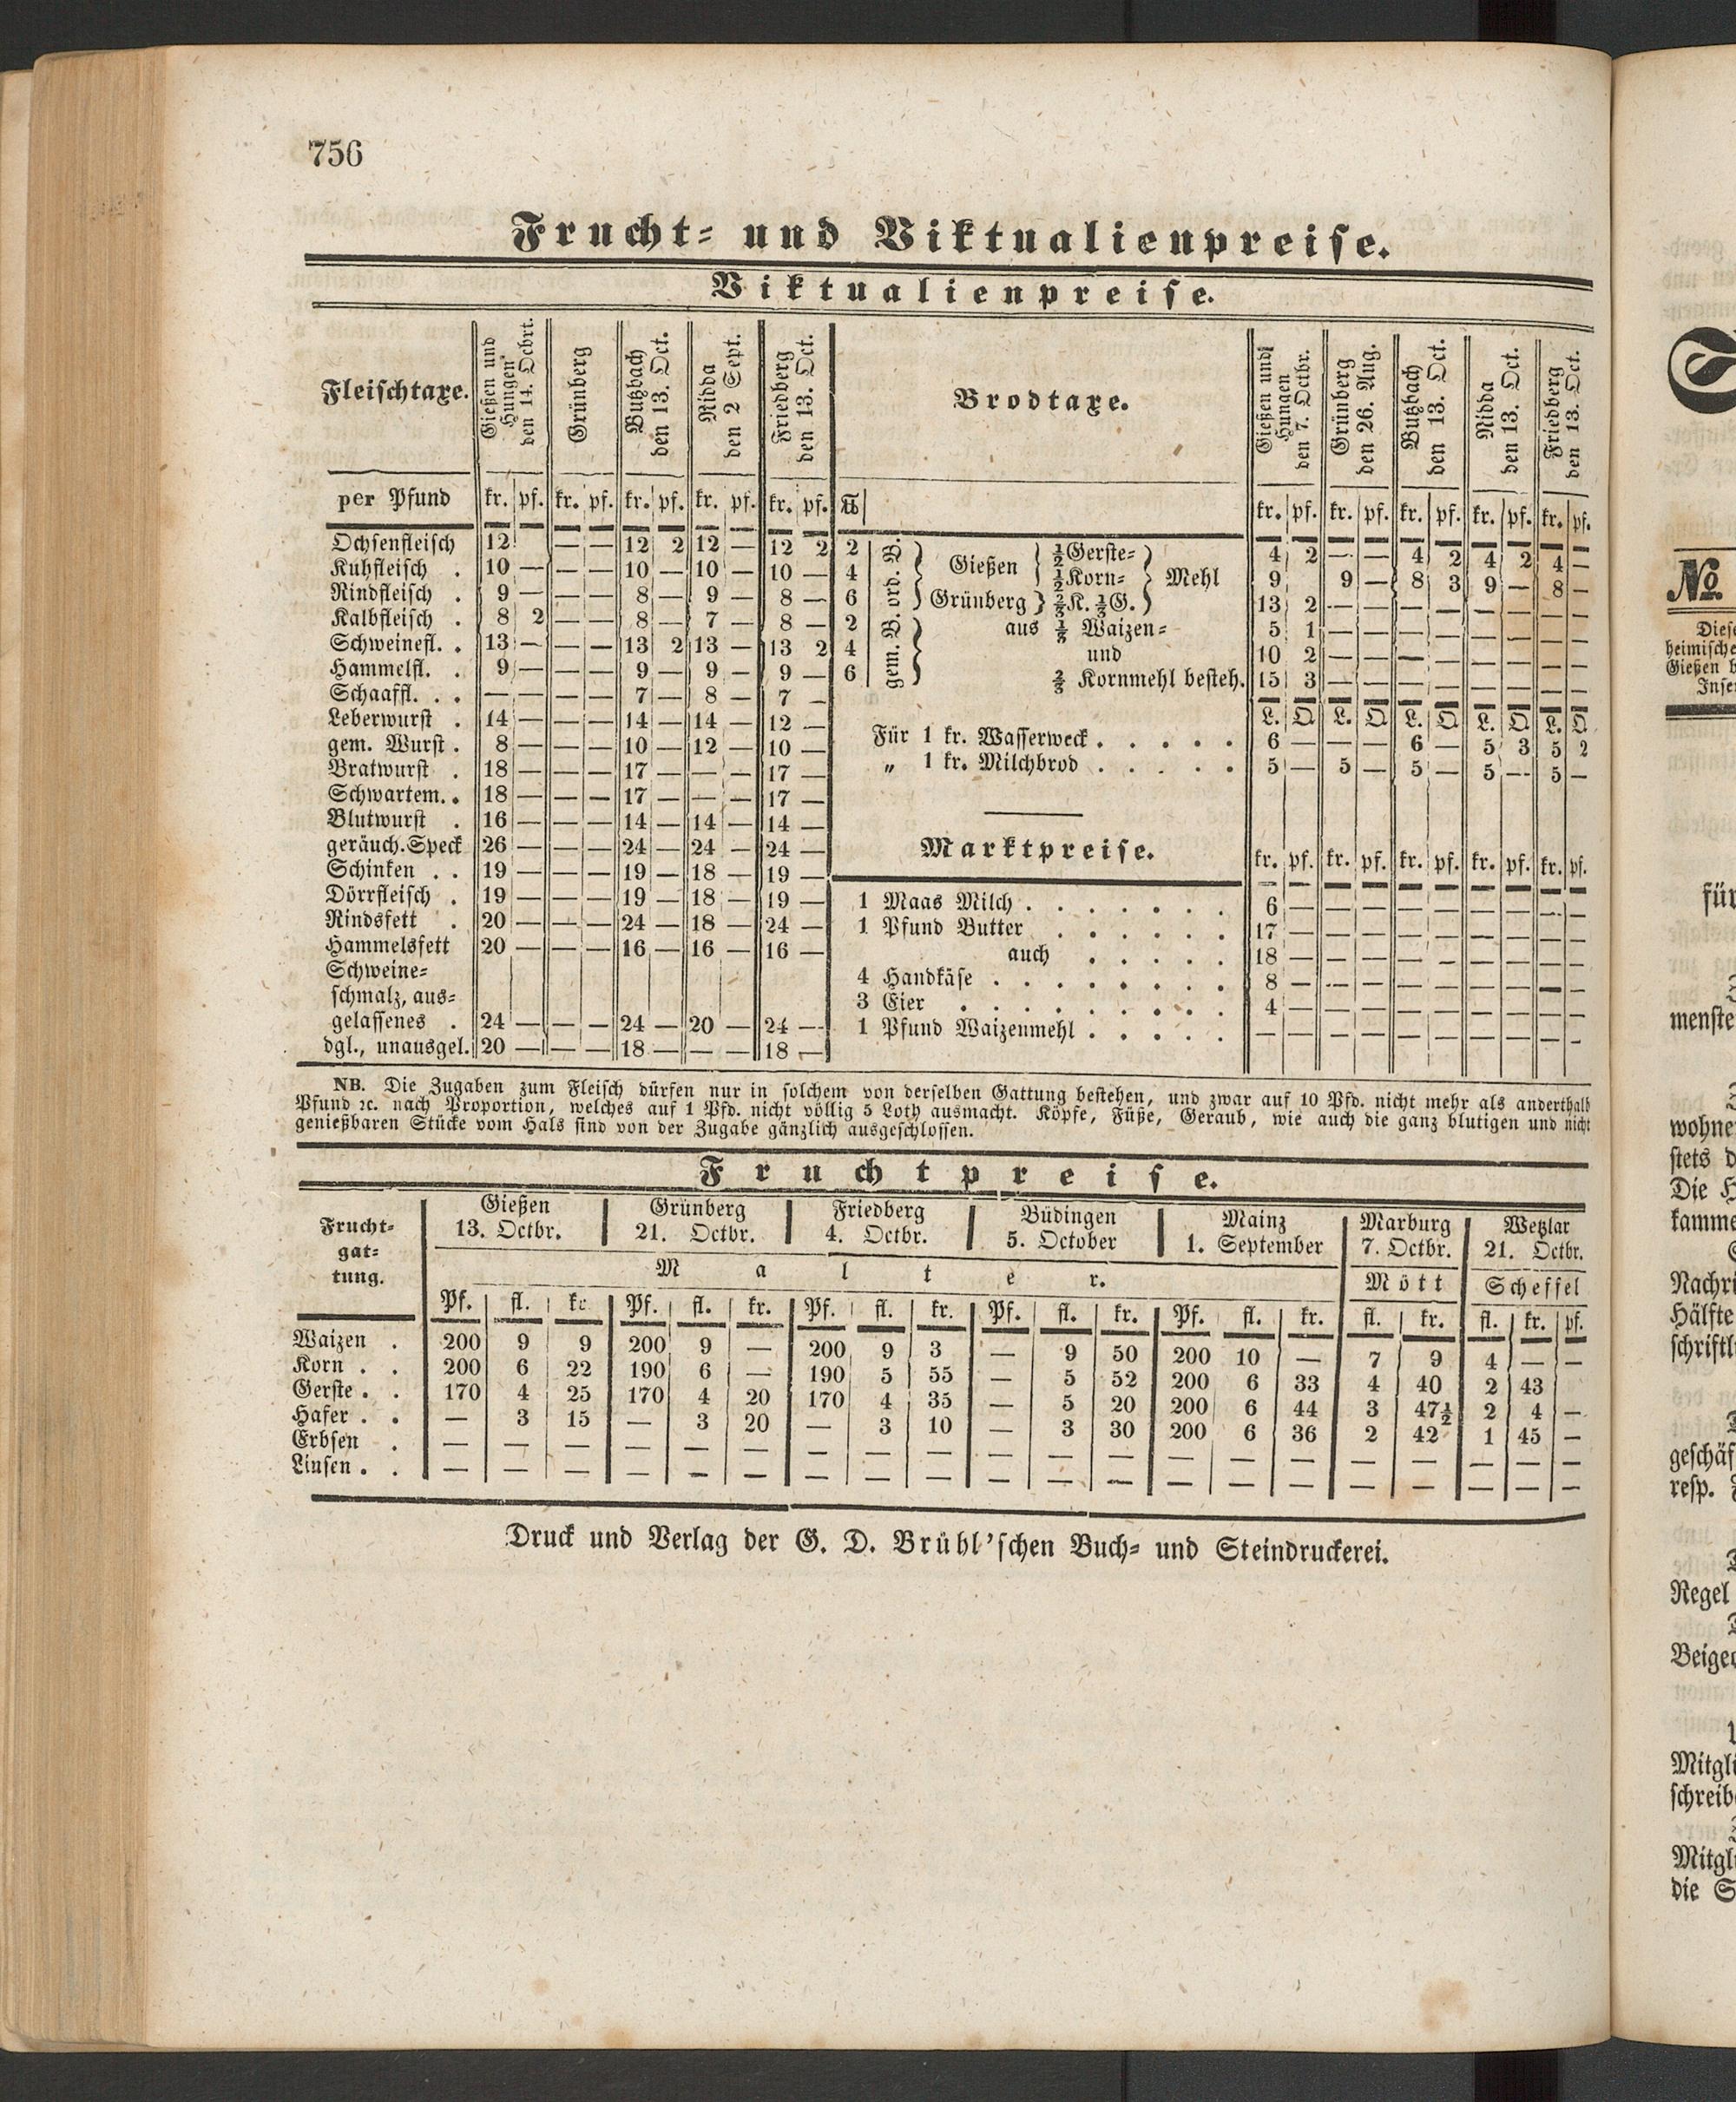 756
Frucht- und Viktualienpreise.
Viktualienpreise.
Fleischtaxe. Gießen und Hungen den 14. Octbrt. Grünberg Butzbach den 13. Oct. Nidda den 2 Sept. Friedberg den 13. Oct.
per Pfund kr. pf. kr. pf. kr. pf. kr. pf. kr. pf.
Ochsenfleisch 12 — — 12 2 12 — 12 2
Kuhfleisch . 10 — — — 10 — 10 — 10 —
Rindfleisch . 9 — — — 8 — 9 — 8 —
Kalbfleisch . 8 2 — — 8 — 7 — 8 —
Schweinefl. . 13 — — — 13 2 13 — 13 2
Hammelfl. . 9 — — — 9 — 9 — 9 —
Schaaffl. . . — — — — 7 — 8 — 7 —
Leberwurst . 14 — — — 14 — 14 — 12 —
gem. Wurst . 8 — — — 10 — 12 — 10 —
Bratwurst . 18 — — — 17 — — — 17 —
Schwartem. . 18 — — — 17 — — — 17 —
Blutwurst . 16 — — — 14 — 14 — 14 —
geräuch. Speck 26 — — — 24 — 24 — 24 —
Schinken . . 19 — — — 19 — 18 — 19 —
Dörrfleisch . 19 — — — 19 — 18 — 19 —
Rindsfett . 20 — — — 24 — 18 — 24 —
Hammelsfett 20 — — — 16 — 16 — 16 —
Schweine-
schmalz, aus-
gelassenes . 24 — — — 24 — 20 — 24 —
dgl., unausgel. 20 — — — 18 — — — 18 —
Brodtaxe. Gießen und Hungen den 7. Octbr. Grünberg den 26. Aug. Butzbach den 13. Oct. Nidda den 13. Oct. Friedberg den 13. Oct.
℔ kr. pf. kr. pf. kr. pf. kr. pf. kr. pf.
2 ord. B. Gießen ½ Gerste- 4 2 — — 4 2 4 2 4 —
4 ½ Korn- Mehl 9 9 — 8 3 9 — 8 —
6 Grünberg ⅔ K. ⅓ G. 13 2 — — — — — — — —
2 gem. B. aus ⅓ Waizen- 5 1 — — — — — — — —
4 und 10 2 — — — — — — — —
6 ⅔ Kornmehl besteh. 15 3 — — — — — — — —
L. Q L. Q L. Q L. Q L. Q
Für 1 kr. Wasserweck . . . . . 6 — — — 6 — 5 3 5 2
„ 1 kr. Milchbrod . . . . . 5 — 5 — 5 — 5 — 5 —
Marktpreise. kr. pf. kr. pf. kr. pf. kr. pf. kr. pf.
1 Maas Milch . . . . . . . 6 — — — — — — — — —
1 Pfund Butter . . . . . . 17 — — — — — — — — —
auch . . . . . 18 — — — — — — — — —
4 Handkäse . . . . . . . . 8 — — — — — — — — —
3 Eier . . . . . . . . . 4 — — — — — — — — —
1 Pfund Waizenmehl . . . . . — — — — — — — — — —
NB. Die Zugaben zum Fleisch dürfen nur in solchem von derselben Gattung bestehen, und zwar auf 10 Pfd. nicht mehr als anderthalb
Pfund ꝛc. nach Proportion, welches auf 1 Pfd. nicht völlig 5 Loth ausmacht. Köpfe, Füße, Geraub, wie auch die ganz blutigen und nicht
genießbaren Stücke vom Hals sind von der Zugabe gänzlich ausgeschlossen.
Fruchtpreise.
Frucht-gat-tung. Gießen 13. Octbr. Grünberg 21. Octbr. Friedberg 4. Octbr. Büdingen 5. October Mainz 1. September Marburg 7. Octbr. Wetzlar 21. Octbr.
Malter. Mött Scheffel
Pf. fl. kr Pf. fl. kr. Pf. fl. kr. Pf. fl. kr. Pf. fl. kr. fl. kr. fl. kr. pf.
Waizen . 200 9 9 200 9 — 200 9 3 — 9 50 200 10 — 7 9 4 — —
Korn . . 200 6 22 190 6 — 190 5 55 — 5 52 200 6 33 4 40 2 43
Gerste . . 170 4 25 170 4 20 170 4 35 — 5 20 200 6 44 3 47½ 2 4 —
Hafer . . — 3 15 — 3 20 — 3 10 — 3 30 200 6 36 2 42 1 45 —
Erbsen . — — — — — — — — — — — — — — — — — — — —
Linsen . . — — — — — — — — — — — — — — — — — — — —
Druck und Verlag der G. D. Brühl'schen Buch- und Steindruckerei.
№
Diese
heimische
Gießen
für
menste
wohne
stets
Die
kamme
Nachri
Hälfte
schriftl
geschäf
resp.
Regel
Beigeo
Mitgli
schreib
Mitgl
die